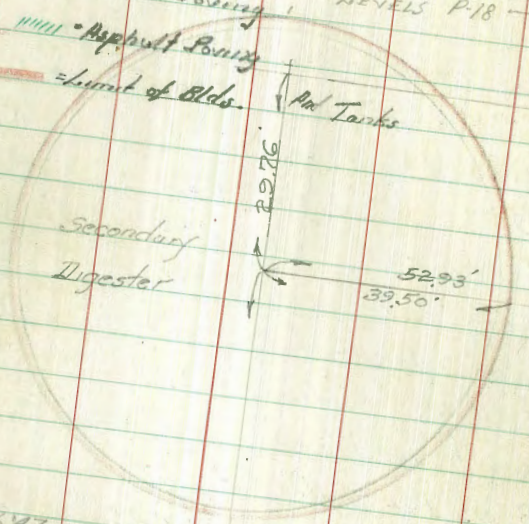 Paving, LEVELS P-18 -
= Asphalt Paving
= Limit of Bldg.
Tanks
29.76
Secondary
Digester
52.93'
39.50'